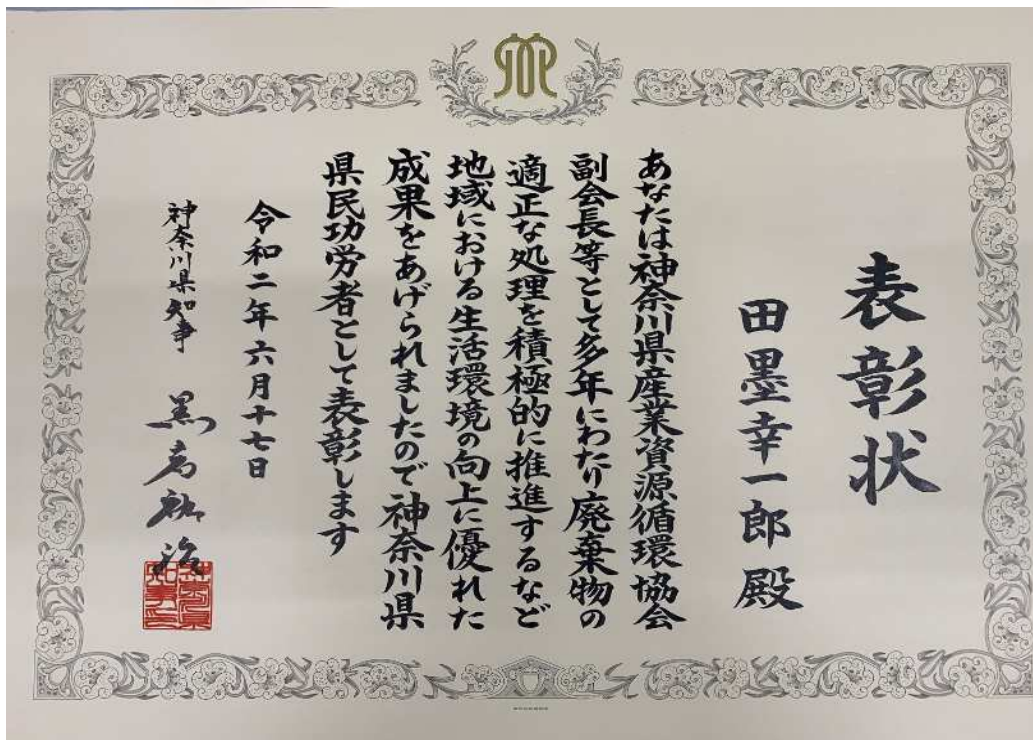 表彰状
田墨幸一郎殿
あなたは神奈川県産業資源循環協会
副会長等として多年にわたり廃棄物の
適正な処理を積極的に推進するなど
地域における生活環境の向上に優れた
成果をあげられましたので神奈川県
県民功労者として表彰します
令和二年六月十七日
神奈川県知事 黒岩祐治